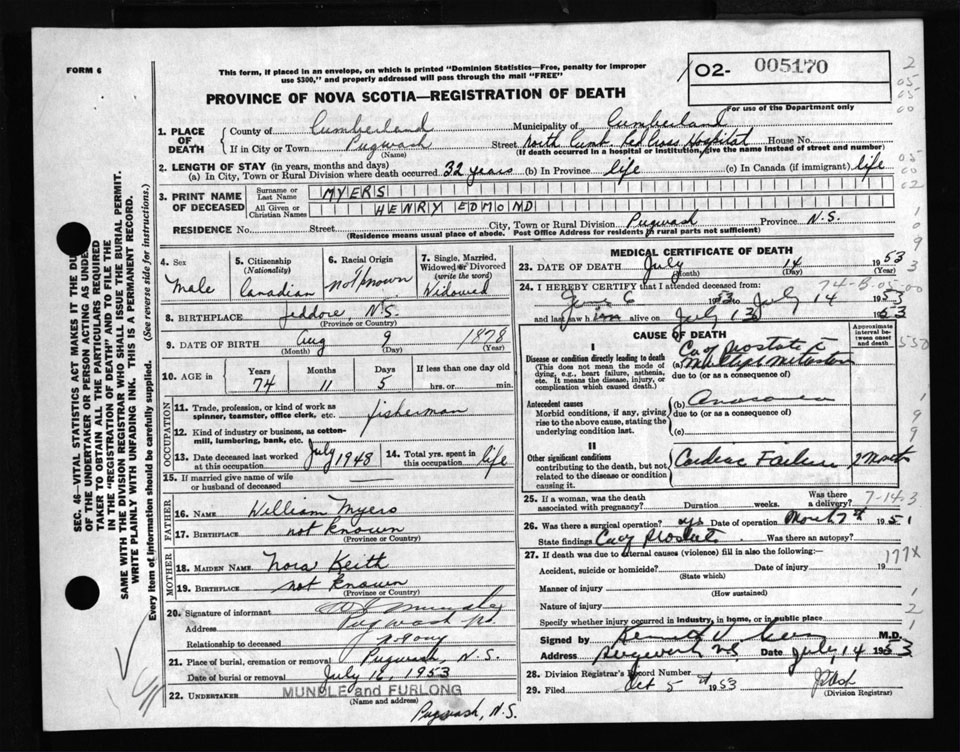 FORM 6
This form, if placed in an envelope, on which is printed "Dominion Statistics—Free, penalty for improper
use $300," and properly addressed will pass through the mail "FREE"
PROVINCE OF NOVA SCOTIA—REGISTRATION OF DEATH
102- 005170
For use of the Department only
1. PLACE OF DEATH
County of Cumberland Municipality of Cumberland
If in City or Town Pugwash Street North Cumb. Red Cross Hospital House No.
(Name) (If death occurred in a hospital or institution, give the name instead of street and number)
2. LENGTH OF STAY (in years, months and days)
(a) In City, Town or Rural Division where death occurred 32 years (b) In Province life (c) In Canada (if immigrant) life
3. PRINT NAME OF DECEASED
Surname or Last Name MYERS
All Given or Christian Names HENRY EDMOND
RESIDENCE No. Street City, Town or Rural Division Pugwash Province N.S.
(Residence means usual place of abode. Post Office Address for residents in rural parts not sufficient)
4. Sex Male
5. Citizenship (Nationality) Canadian
6. Racial Origin Not known
7. Single, Married, Widowed or Divorced (write the word) Widowed
8. BIRTHPLACE Jeddore, N.S.
(Province or Country)
9. DATE OF BIRTH Aug 9 1878
(Month) (Day) (Year)
10. AGE in Years Months Days If less than one day old
74 11 5 hrs. or min.
OCCUPATION
11. Trade, profession, or kind of work as spinner, teamster, office clerk, etc. fisherman
12. Kind of industry or business, as cotton-mill, lumbering, bank, etc.
13. Date deceased last worked at this occupation July 1948
14. Total yrs. spent in this occupation life
15. If married give name of wife or husband of deceased
FATHER
16. NAME William Myers
17. BIRTHPLACE not known
(Province or Country)
MOTHER
18. MAIDEN NAME Nora Keith
19. BIRTHPLACE not known
(Province or Country)
20. Signature of informant
Address Pugwash
Relationship to deceased
21. Place of burial, cremation or removal Pugwash, N.S.
Date of burial or removal July 16, 1953
22. UNDERTAKER MUNDLE and FURLONG
(Name and address)
Pugwash, N.S.
MEDICAL CERTIFICATE OF DEATH
23. DATE OF DEATH July 14 1953
(Month) (Day) (Year)
24. I HEREBY CERTIFY that I attended deceased from:
June 6 1953 to July 14 1953
and last saw him alive on July 13 1953
CAUSE OF DEATH
Approximate interval between onset and death
I
Disease or condition directly leading to death
(This does not mean the mode of dying, e.g., heart failure, asthenia, etc. It means the disease, injury, or complication which caused death.)
(a) Ca of Prostate
due to (or as a consequence of)
Antecedent causes
Morbid conditions, if any, giving rise to the above cause, stating the underlying condition last.
(b)
due to (or as a consequence of)
(c)
II
Other significant conditions
contributing to the death, but not related to the disease or condition causing it.
Cardiac Failure 2 Months
25. If a woman, was the death associated with pregnancy? Duration weeks. Was there a delivery?
7-14-3
26. Was there a surgical operation? yes Date of operation 1951
State findings Ca of Prostate Was there an autopsy?
27. If death was due to external causes (violence) fill in also the following:—
177X
Accident, suicide or homicide? Date of injury 19
(State which)
Manner of injury
(How sustained)
Nature of injury
Specify whether injury occurred in industry, in home, or in public place
Signed by M.D.
Address Date July 14 1953
28. Division Registrar's Record Number
29. Filed Oct 5th 1953
(Division Registrar)
SEC. 46—VITAL STATISTICS ACT MAKES IT THE DUTY
OF THE UNDERTAKER OR PERSON ACTING AS UNDER-
TAKER TO OBTAIN ALL THE PARTICULARS REQUIRED
IN THE "REGISTRATION OF DEATH" AND TO FILE THE
SAME WITH THE DIVISION REGISTRAR WHO SHALL ISSUE THE BURIAL PERMIT.
WRITE PLAINLY WITH UNFADING INK. THIS IS A PERMANENT RECORD.
Every item of information should be carefully supplied. (See reverse side for instructions.)